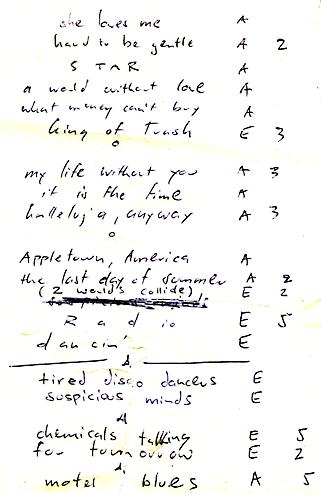 she loves me A
hard to be gentle A 2
S T A R A
a world without love A
what money can't buy A
King of Trash E 3
my life without you A 3
it is the time A
halleluja, anyway A 3
Appletown, America A
the last day of summer A 2
(2 world's collide) E 2
Radio E 5
dancin' E
A.
tired disco dancers E
suspicious minds E
A
chemicals talking E 5
for tomorrow E 2
A.
motel blues A 5